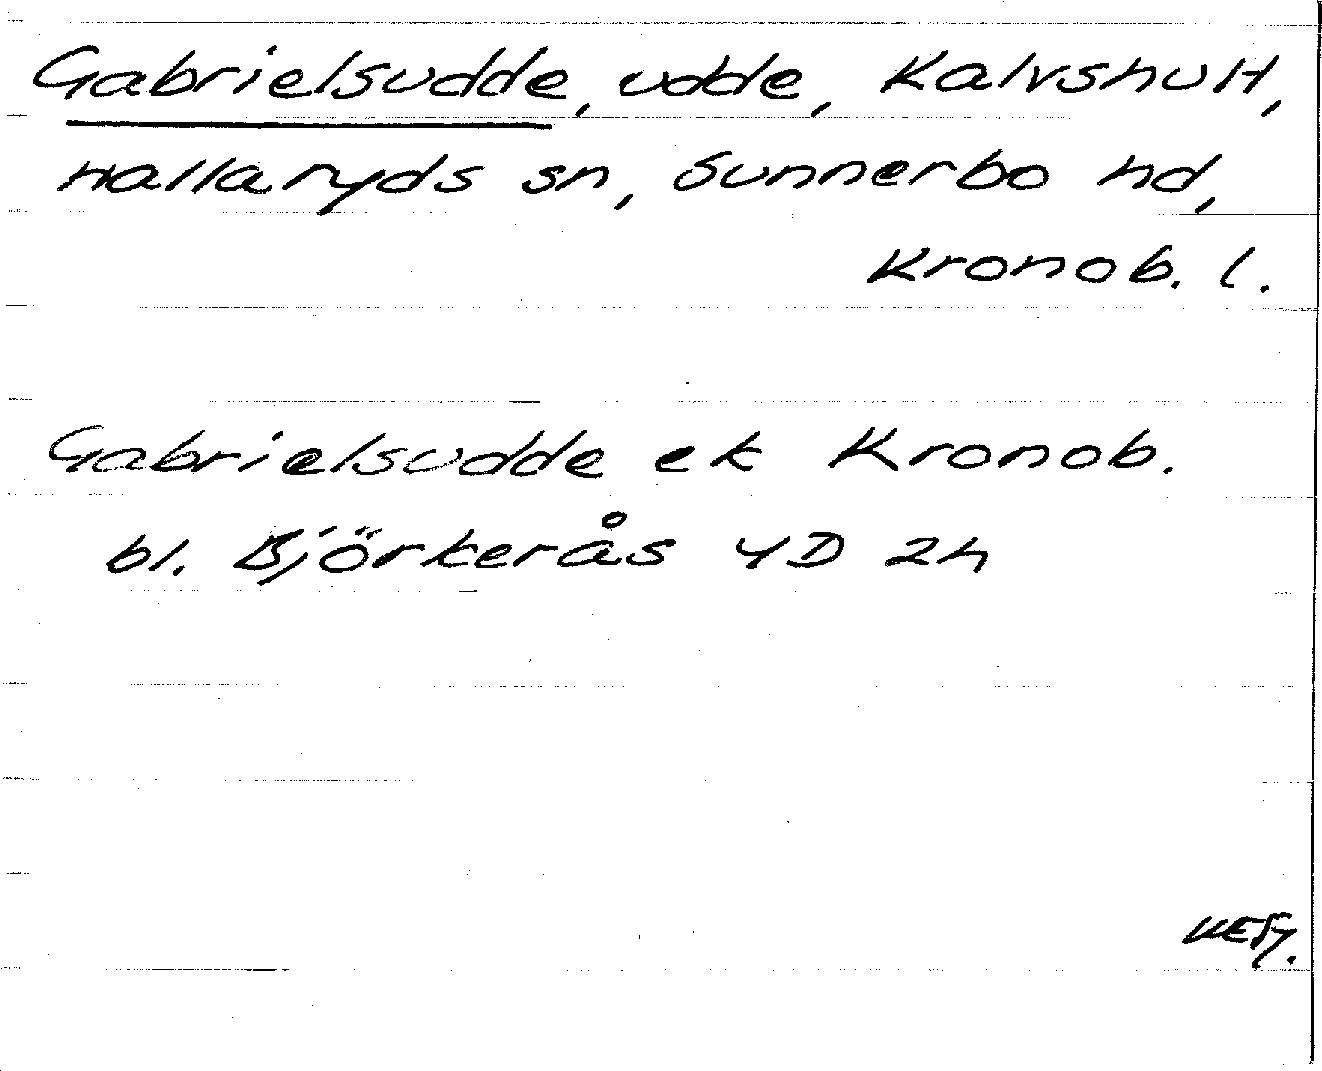 Gabrielsudde, udde, Kalvshult,
Hallaryds sn, Sunnerbo hd,
Kronob. l.
Gabrielsudde ek Kronob.
bl. Björkerås 4D 2h